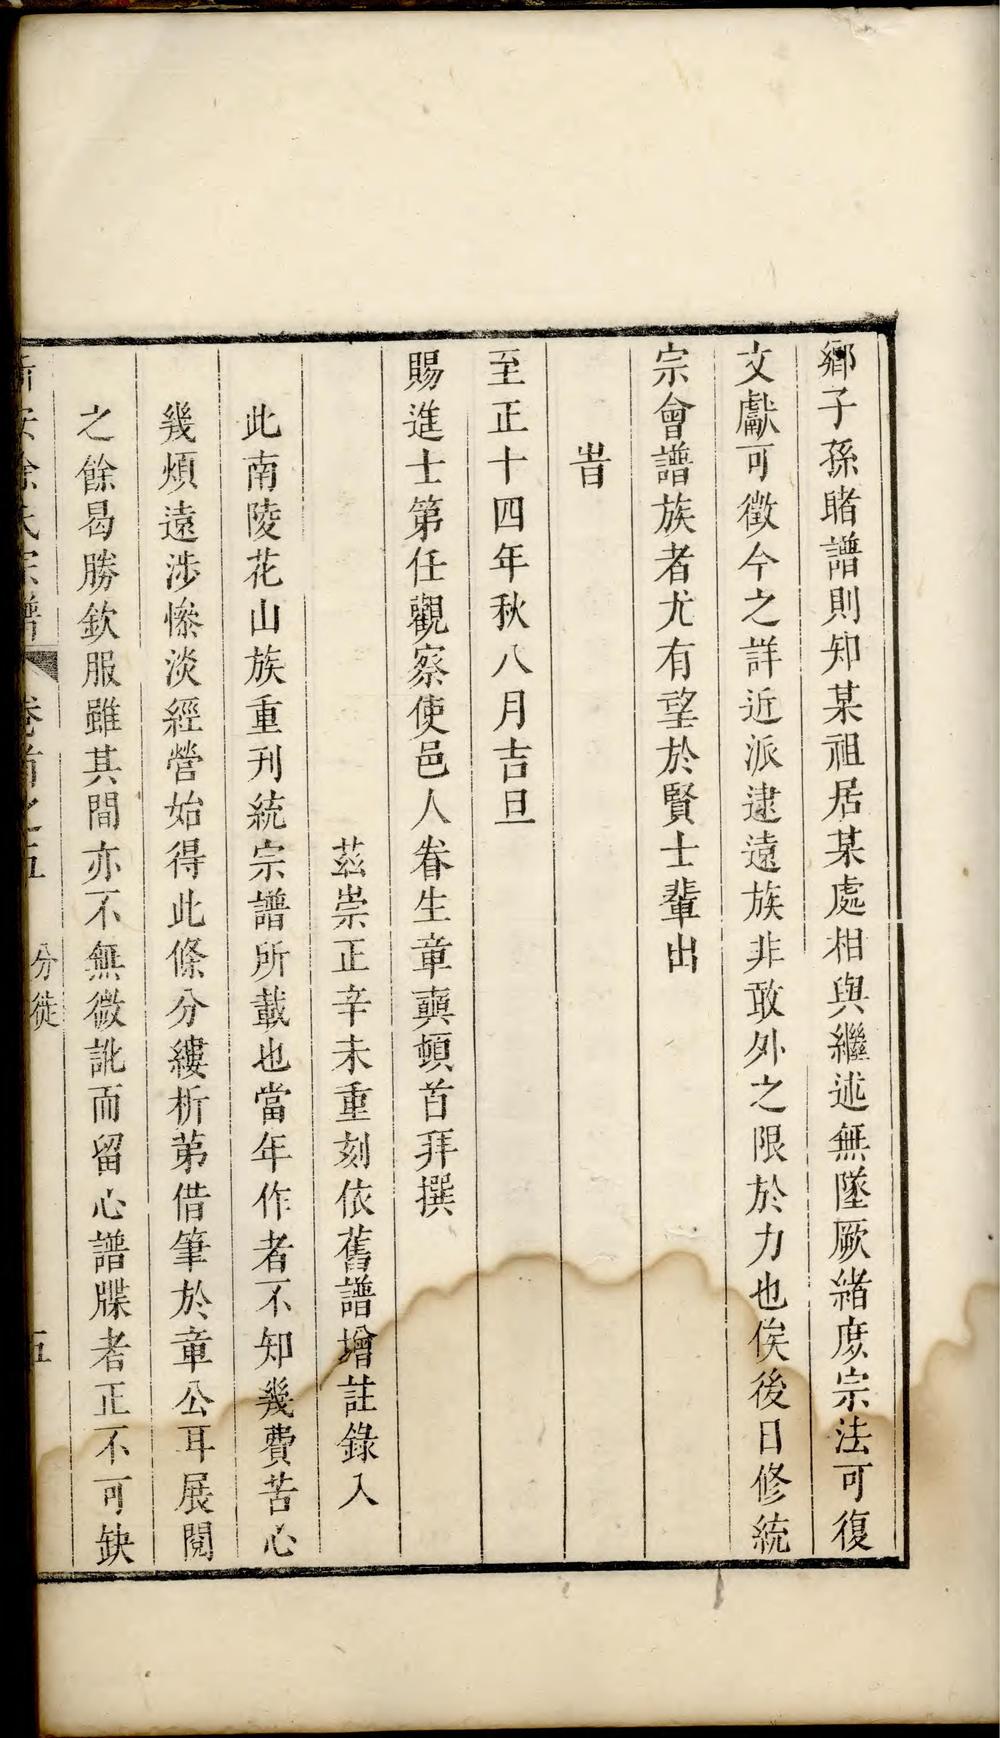 鄉子孫睹譜則知某祖居某處相與繼述無墜厥緒庶宗法可復
文獻可徵今之詳近派逮遠族非敢外之限於力也俟後日修統
宗會譜族者尤有望於賢士輩出
旹
至正十四年秋八月吉旦
賜進士第任觀察使邑人眷生章藇頓首拜撰
茲崇正辛未重刻依舊譜增註錄入
此南陵花山族重刊統宗譜所載也當年作者不知幾費苦心
幾煩遠涉慘淡經營始得此條分縷析第借筆於章公耳展閱
之餘曷勝欽服雖其間亦不無微訛而留心譜牒者正不可缺
新安徐氏宗譜 卷首之五 分徙 五